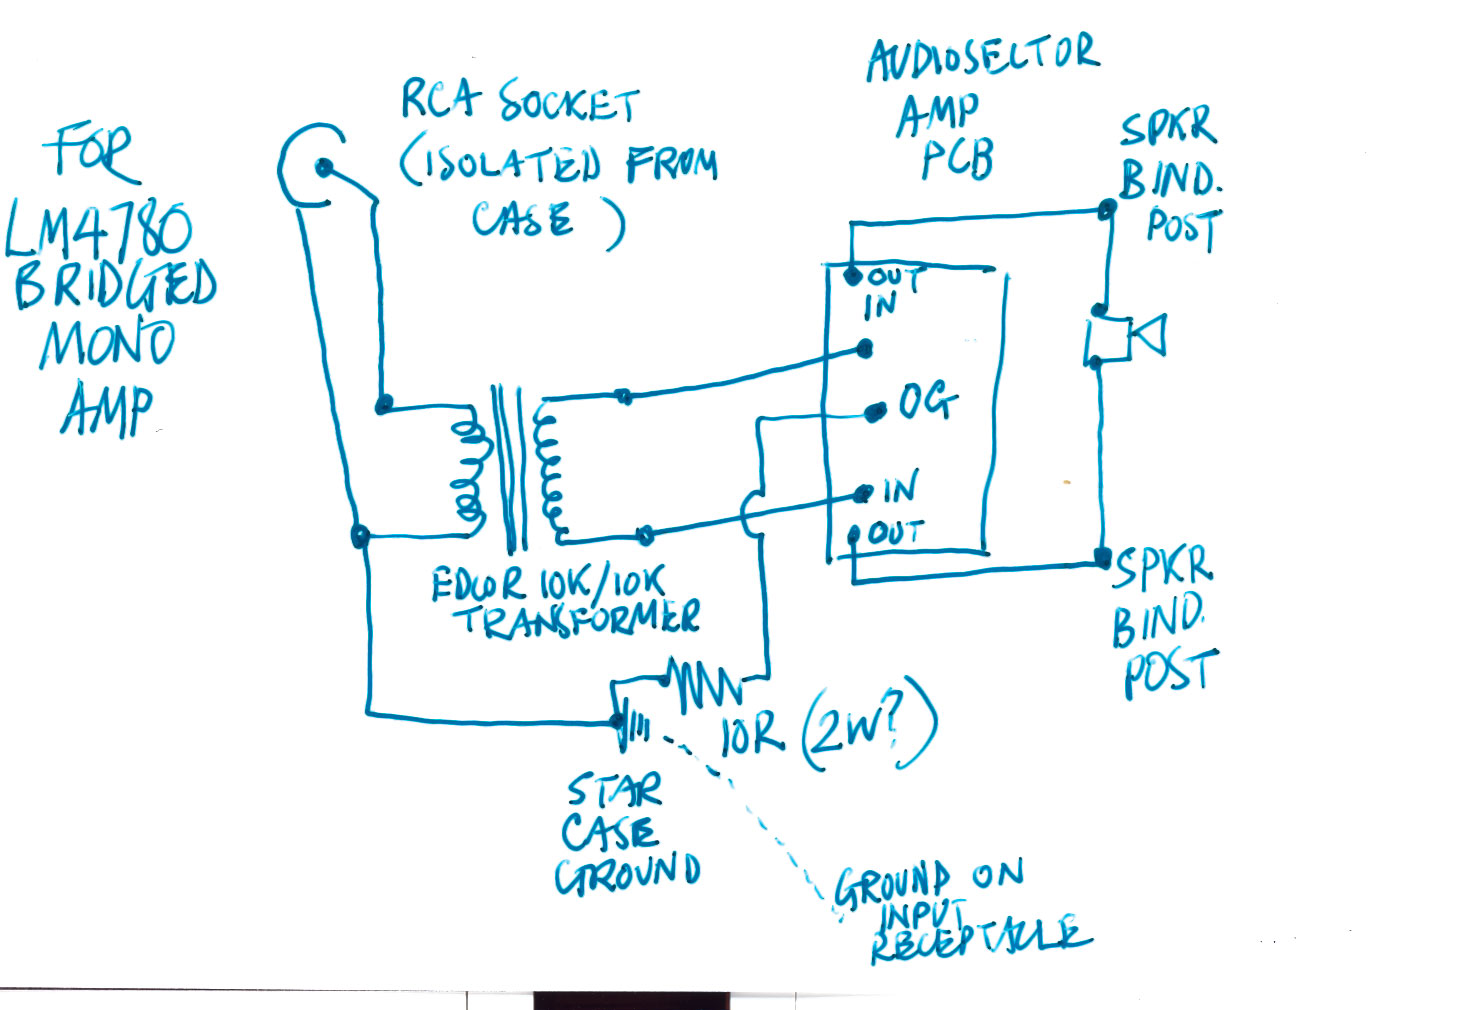 FOR
LM4780
BRIDGED
MONO
AMP
RCA SOCKET
(ISOLATED FROM
CASE)
AUDIOSELTOR
AMP
PCB
SPKR
BIND.
POST
OUT
IN
OG
IN
OUT
EDCOR 10K/10K
TRANSFORMER
SPKR
BIND.
POST
10R (2W?)
STAR
CASE
GROUND
GROUND ON
INPUT
RECEPTACLE